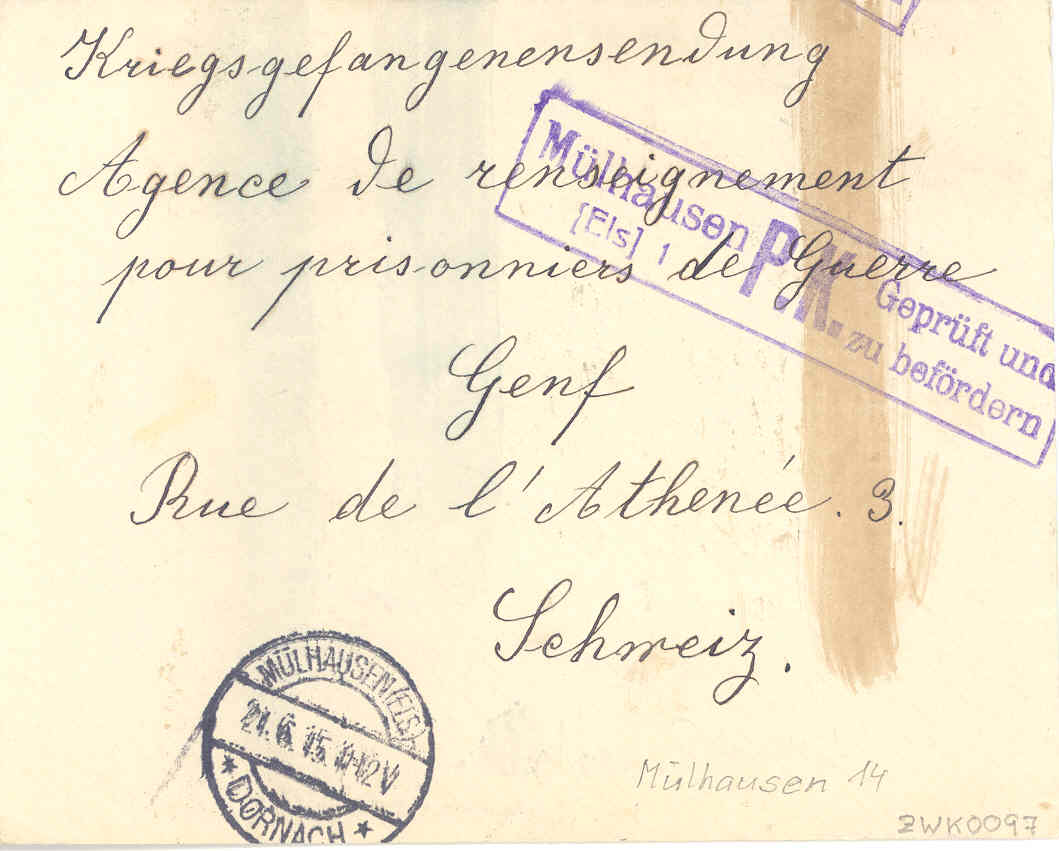 Kriegsgefangenensendung
Agence de renseignement
pour prisonniers de Guerre
Genf
Rue de l'Athenée. 3.
Schweiz.
Mülhausen
[Els] 1
P.K.
Geprüft und
zu befördern
MÜLHAUSEN (ELS)
21.6.15. 11-12V
* DORNACH *
Mülhausen 14
ZWK0097